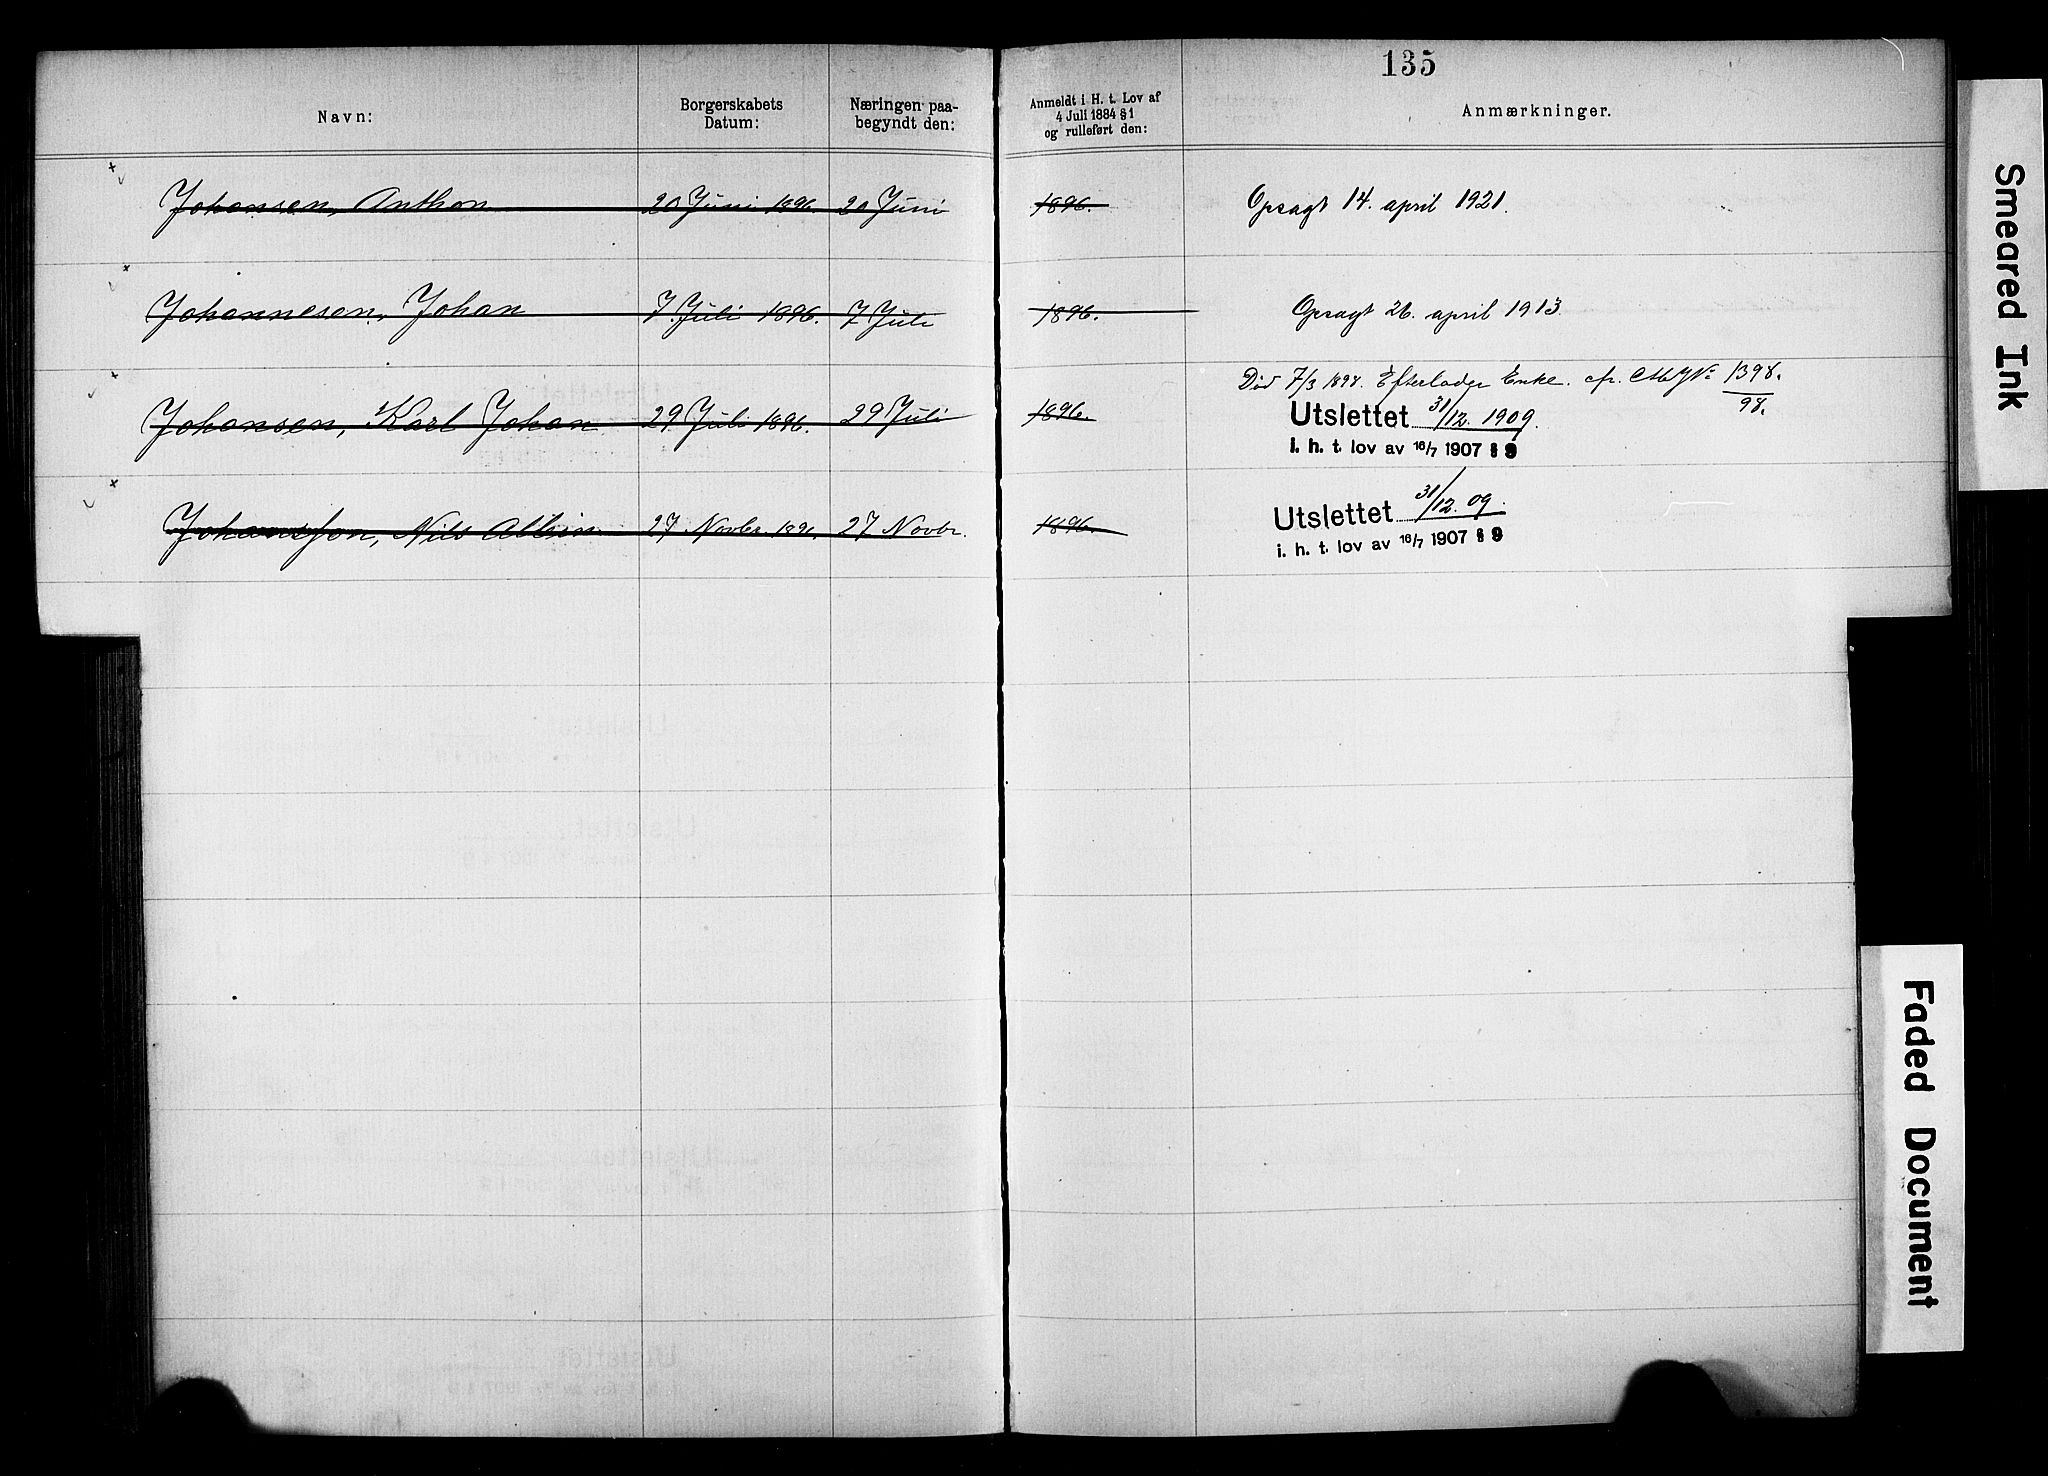 135
Navn:
Borgerskabets
Datum:
Næringen paa-
begyndt den:
Anmeldt i H. t. Lov af
4 Juli 1884 § 1
og rulleført den:
Anmærkninger.
Johansen, Anthon 20 Juni 1896. 20 Juni 1896. Opsagt 14. april 1921.
Johannesen, Johan 7 Juli 1896. 7 Juli 1896. Opsagt 26. april 1913.
Død 7/3 1898. Efterlader Enke. cfr. No 1398./98.
Johansen, Karl Johan 29 Juli 1896. 29 Juli 1896. Utslettet 31/12. 1909.
i. h. t. lov av 16/7 1907 § 9
Johansson, Nils Albin 27 Novbr. 1896. 27 Novbr. 1896. Utslettet 31/12. 09.
i. h. t. lov av 16/7 1907 § 9
Smeared Ink
Faded Document